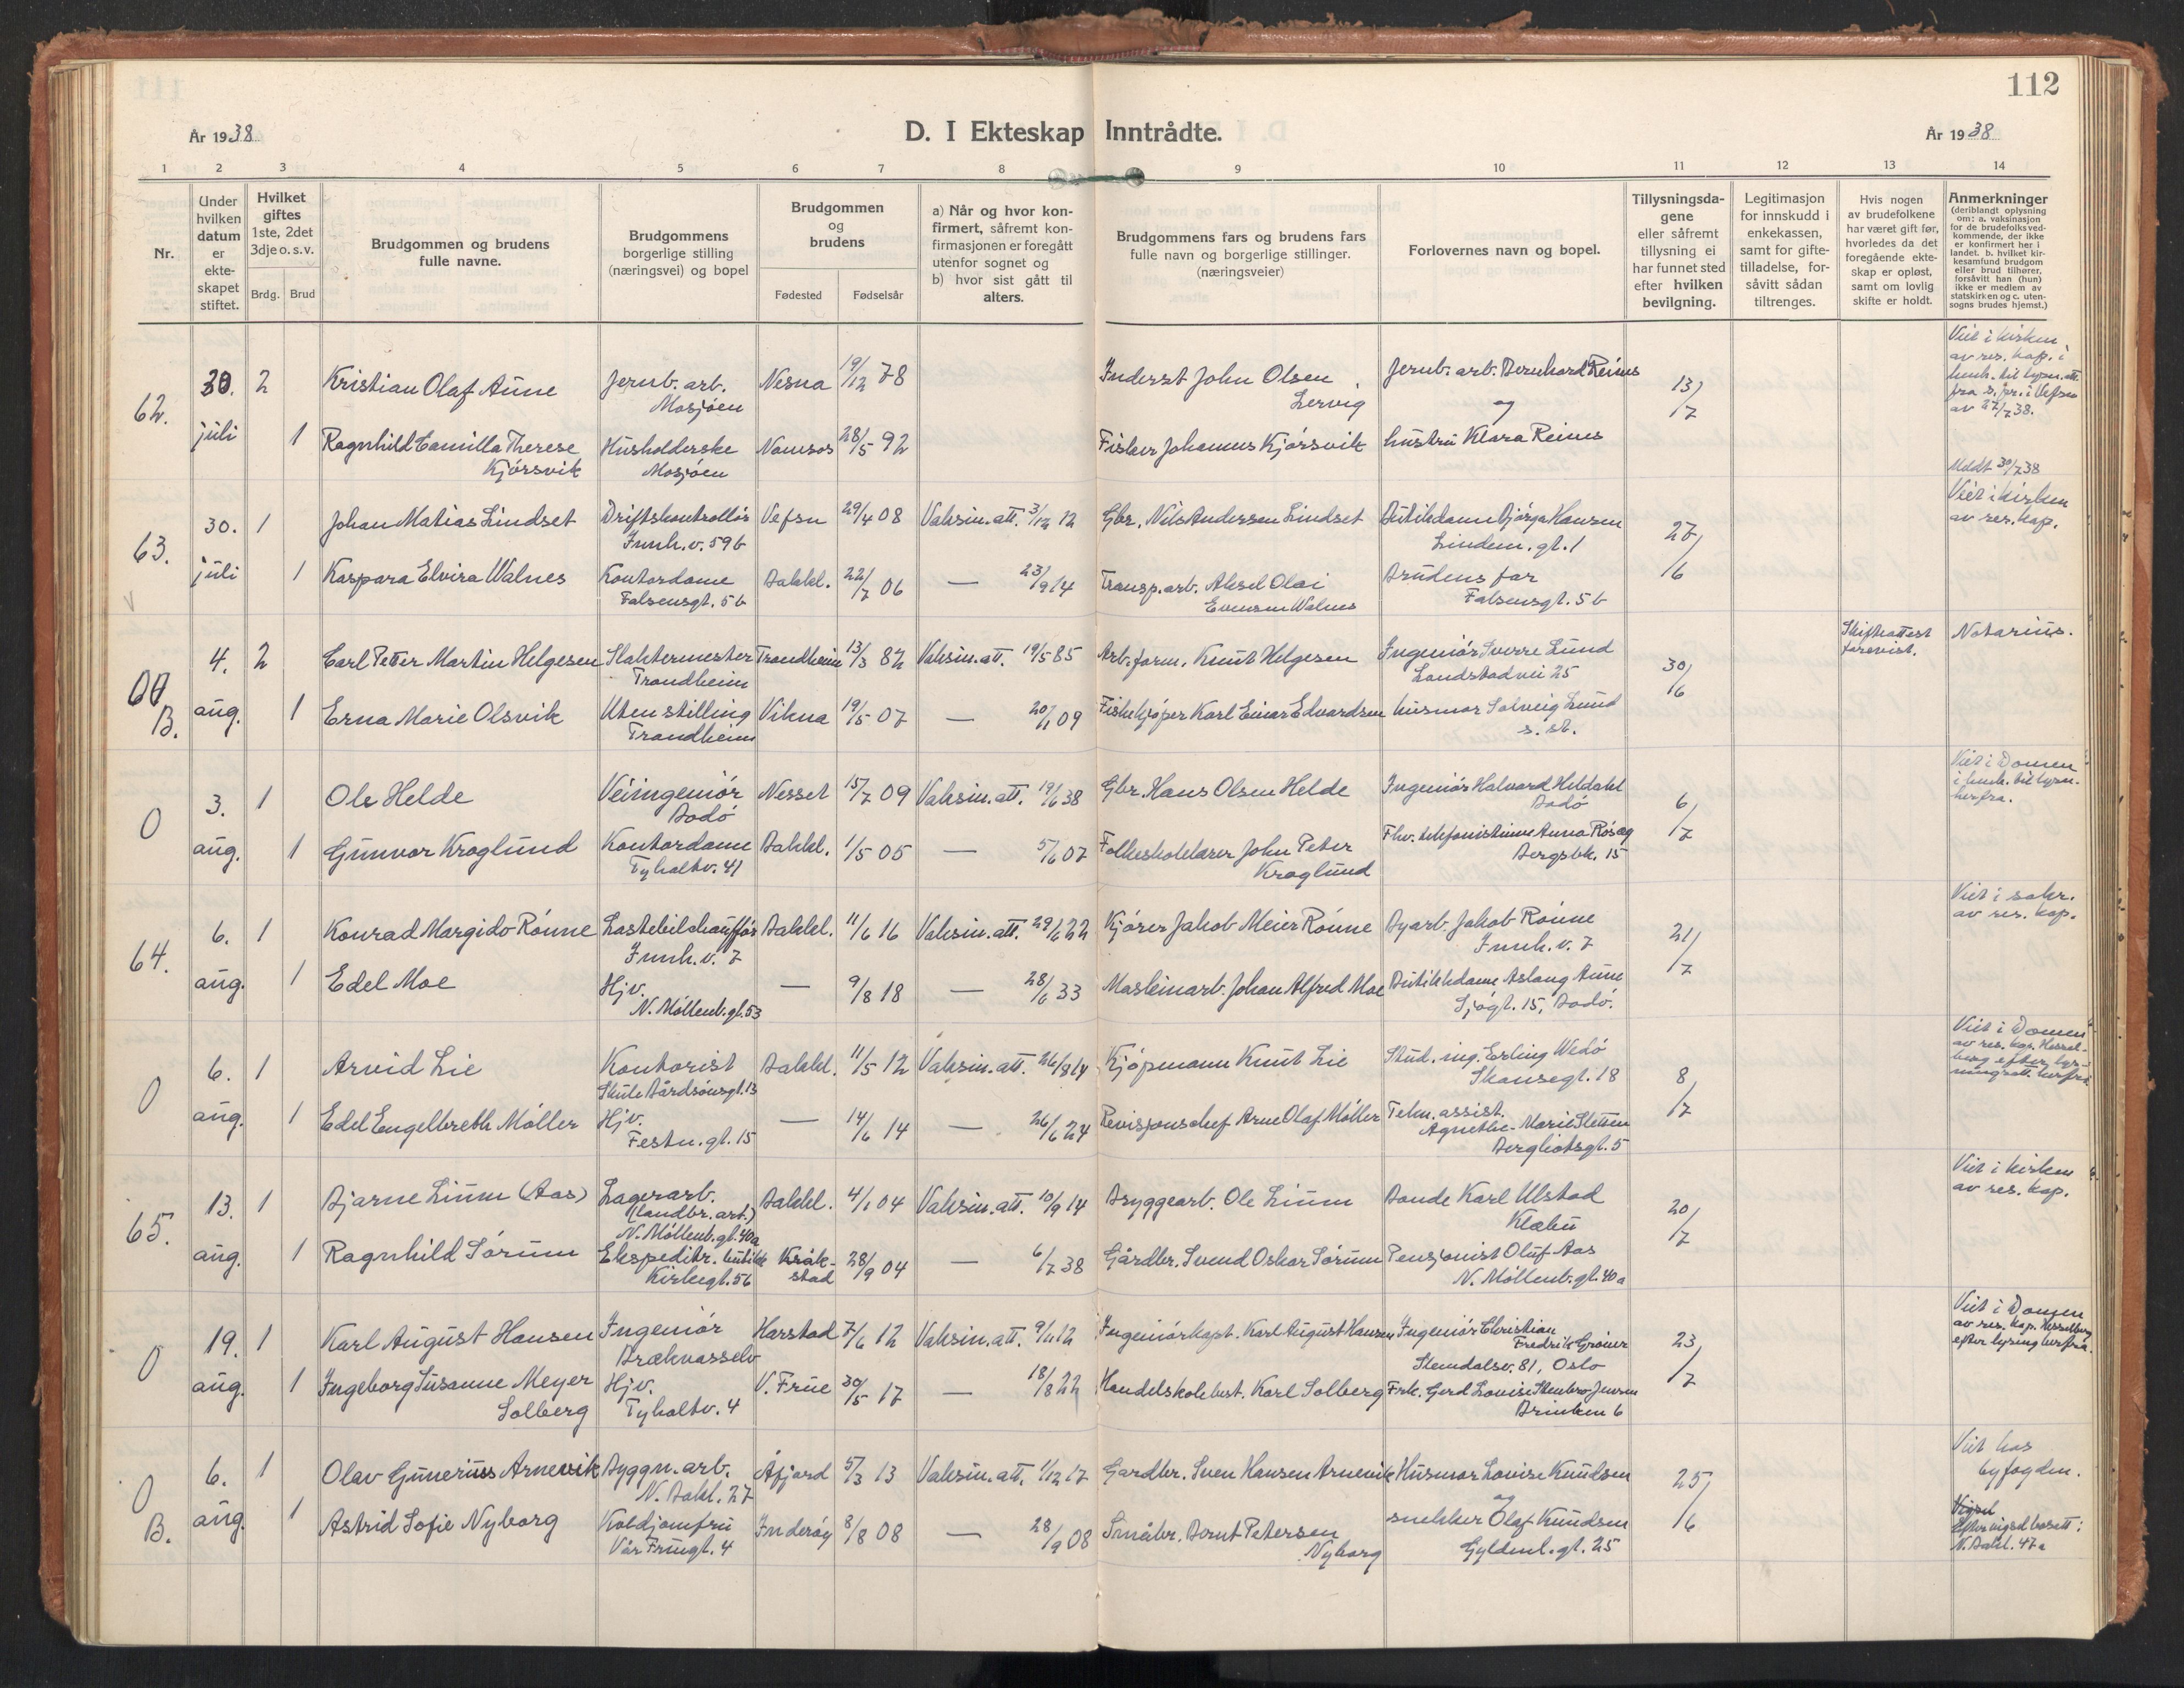 112
År 1938
D. I Ekteskap Inntrådte.
År 1938
1 2 3 4 5 6 7 8 9 10 11 12 13 14
Nr.
Under hvilken datum er ekte-skapet stiftet.
Hvilket giftes 1ste, 2det 3dje o. s. v.
Brdg. Brud
Brudgommen og brudens fulle navne.
Brudgommens borgerlige stilling (næringsvei) og bopel
Brudgommen og brudens
Fødested Fødselsår
a) Når og hvor kon-firmert, såfremt kon-firmasjonen er foregått utenfor sognet og b) hvor sist gått til alters.
Brudgommens fars og brudens fars fulle navn og borgerlige stillinger. (næringsveier)
Forlovernes navn og bopel.
Tillysningsda-gene eller såfremt tillysning ei har funnet sted efter hvilken bevilgning.
Legitimasjon for innskudd i enkekassen, samt for gifte-tilladelse, for-såvitt sådan tiltrenges.
Hvis nogen av brudefolkene har været gift før, hvorledes da det foregående ekte-skap er opløst, samt om lovlig skifte er holdt.
Anmerkninger (deriblandt oplysning om: a. vaksinasjon for de brudefolks ved-kommende, der ikke er konfirmert her i landet. b. hvilket kir-kesamfund brudgom eller brud tilhører, forsåvitt han (hun) ikke er medlem av statskirken og c. uten-sogns brudes hjemst.)
62. 30. juli 2 Kristian Olaf Aune Jernb. arb. Mosjöen Nesna 19/12 78 Inderst John Olsen Lervig Jernb. arb. Bernhard Reines og 13/7 Viet i kirken av res. kap. i henh. til lysn. att. fra s. pr. i Vefsn av 27/7 38.
1 Ragnhild Camilla Therese Kjörsvik Husholderske Mosjöen Namsos 28/5 92 Fisker Johannes Kjörsvik hustru Klara Reines Meldt 30/7 38
63. 30. juli 1 Johan Matias Lindset Driftskontrollör Innh. v. 59b Vefsn 29/4 08 Vaksin. att. 3/12 12 Gbr. Nils Andersen Lindset Butikkdame Björga Hansen Lindem. gt. 1 27/6 Viet i kirken av res. kap.
1 Kaspara Elvira Walnes Kontordame Falsensgt. 5b Bakkl. 22/7 06 — 23/9 14 Transp. arb. Aksel Olai Evensen Walnes Brudens far Falsensgt. 5b
0 B. 4. aug. 2 Carl Petter Martin Helgesen Slaktermester Trondheim Trondheim 13/3 82 Vaksin. att. 19/5 85 Arb. form. Knut Helgesen Ingeniör Sverre Lund Landstadvei 25 30/6 Skifteattest forevist. Notarius.
1 Erna Marie Olsvik Uten stilling Trondheim Vikna 19/5 07 — 09 Fiskekjöper Karl Einar Edvardsen husmor Solveig Lund s. st.
0 3. aug. 1 Ole Helde Veiingeniör Bodö Nesset 15/7 09 Vaksin. att. 19/6 38 Gbr. Hans Olsen Helde Ingeniör Halvard Heldahl Bodö 6/7 Viet i Domen i henh. til lysn. herfra.
1 Gunvor Kroglund Kontordame Tyholtv. 41 Bakkl. 1/5 05 — 5/6 07 Folkeskolelærer John Peter Kroglund Fhv. telefonistinne Anna Rösæg Bergsbk. 15
64. 6. aug. 1 Konrad Margido Rönne Lastebilchaufför Innh. v. 7 Bakkl. 11/6 16 Vaksin. att. 29/6 22 Kjörer Jakob Meier Rönne Byarb. Jakob Rönne Innh. v. 7 21/7 Viet i sakr. av res. kap.
1 Edel Moe Hjv. N. Möllenb. gt. 53 — 9/8 18 — 28/6 33 Maskinarb. Johan Alfred Moe Butikkdame Aslaug Aune Sjögt. 15, Bodö.
0 6. aug. 1 Arvid Lie Kontorist Skule Bårdsönsgt. 13 Bakkl. 11/5 12 Vaksin. att. 26/8 14 Kjöpmann Knut Lie Stud. ing. Erling Wedö Skansegt. 18 8/7 Viet i Domen av res. kap. Hesselberg efter lysningsatt. herfra
1 Edel Engelbreth Möller Hjv. Festn. gt. 15 — 14/6 14 — 26/6 24 Revisjonschef Arne Olaf Möller Tekn. assist. Agnethe-Marie Stetten Bergliotsgt. 5
65. 13. aug. 1 Bjarne Lium (Aas) Lagerarb. (landbr. arb.) N. Möllenb. gt. 40a Bakkl. 4/1 04 Vaksin. att. 10/9 14 Bryggearb. Ole Lium Bonde Karl Ulstad Klæbu 20/7 Viet i kirken av res. kap.
1 Ragnhild Sörum Ekspeditr. butikk Kirkegt. 56 Kråkstad 28/9 04 — 6/7 38 Gårdbr. Svend Oskar Sörum Pensjonist Oluf Aas N. Möllenb. gt. 40a
0 19. aug. 1 Karl August Hansen Ingeniör Brækvasselv Harstad 7/6 12 Vaksin. att. 9/11 12 Ingeniörkapt. Karl August Hansen Ingeniör Christian Fredrik Gröner Slemdalsv. 81, Oslo 23/7 Viet i Domen av res. kap. Hesselberg efter lysing herfra.
1 Ingeborg Susanne Meyer Solberg Hjv. Tyholtv. 4 V. Frue 30/5 17 — 18/8 22 Handelskolebest. Karl Solberg Frk. Gerd Lovise Stenbro-Jensen Brinken 6
0 B. 6. aug. 1 Olav Gunerius Arnevik Byggn. arb. N. Bakl. 27 Åfjord 5/3 13 Vaksin. att. 1/12 17 Gardbr. Sven Hansen Arnevik Husmor Lovise Knudsen og 25/6 Viet hos byfogden.
1 Astrid Sofie Nyborg Koldjomfru Vår Fruegt. 4 Inderöy 8/8 08 — 28/9 08 Småbr. Bernt Petersen Nyborg snekker Olaf Knudsen Gyldenl. gt. 25 Efter vigsel bosatt: N. Bakl. 47a